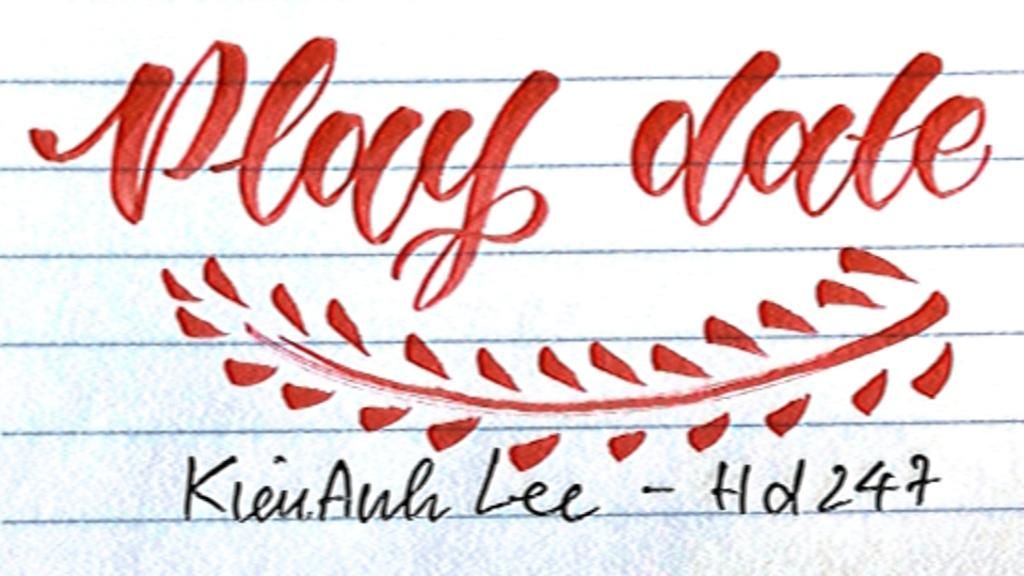 Play date
KienAnh Lee - Hd247